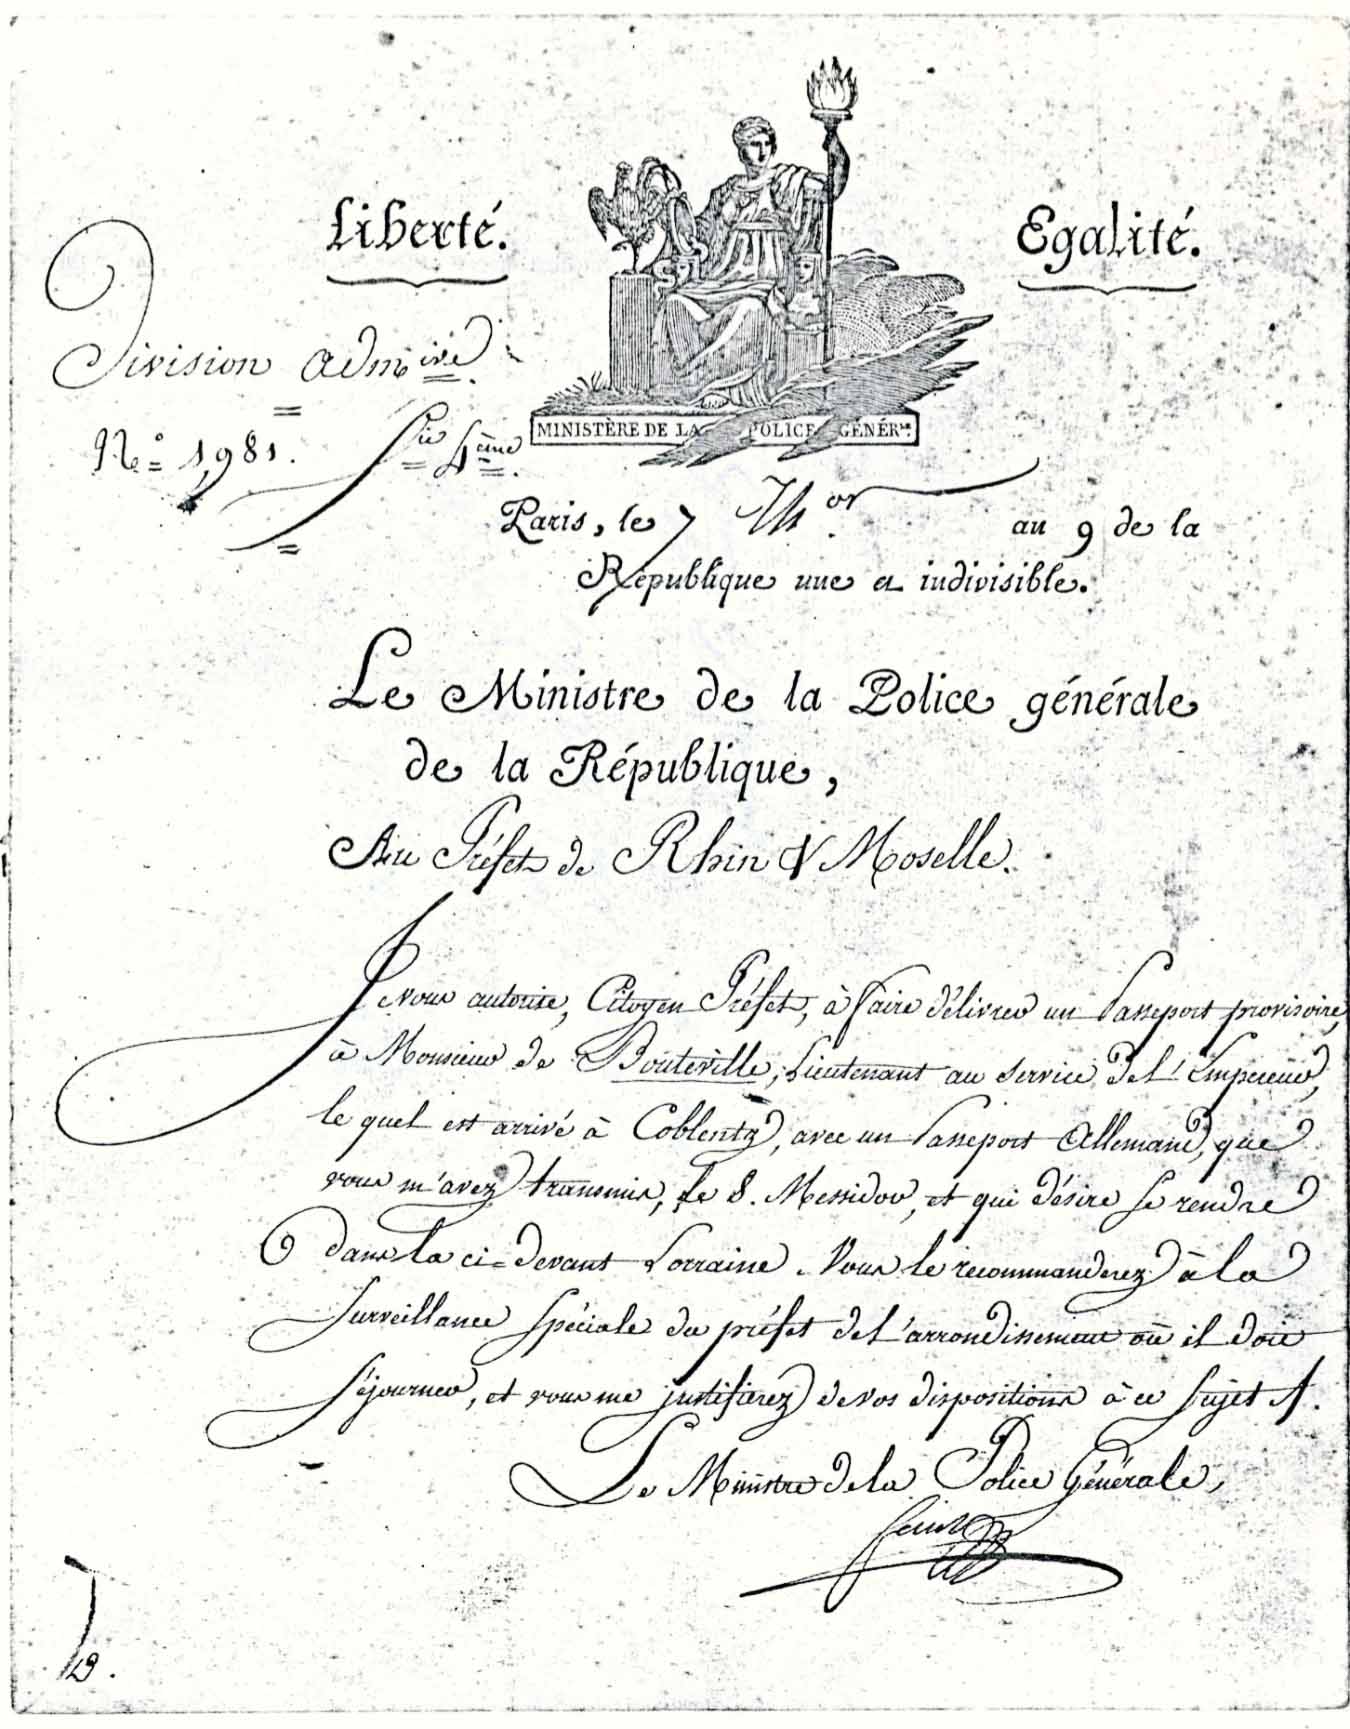 Liberté.
Egalité.
MINISTÈRE DE LA POLICE GÉNÉR.le
Division admive
N.o 1981. Sie 4ème
Paris, le 7 Th.or an 9 de la
République une et indivisible.
Le Ministre de la Police générale
de la République,
Au Préfet de Rhin & Moselle.
Je vous autorise, Citoyen Préfet, à faire délivrer un Passeport provisoire,
à Monsieur de Bouteville, Lieutenant au service de l'Empereur,
le quel est arrivé à Coblentz, avec un Passeport Allemand, que
vous m'avez transmis, le 8. Messidor, et qui désire se rendre
dans la ci=devant Lorraine. Vous le recommanderez à la
surveillance spéciale du préfet de l'arrondissement où il doit
séjourner, et vous me justifierez de vos dispositions à ce sujet.
Le Ministre de la Police Générale,